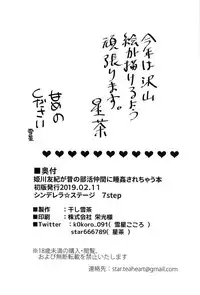 今年は沢山
絵が描けるよう
頑張ります。
星茶
■奥付
姫川友紀が昔の部活仲間に睡姦されちゃう本
初版発行2019.02.11
シンデレラ☆ステージ 7step
■製作：干し雪茶
■印刷：株式会社 栄光様
■Twitter：k0koro_091( 雪星こころ )
star666789( 星茶 )
※18歳未満の購入・閲覧、
および無断転載を禁止いたします
連絡先：star.teaheart@gmail.com